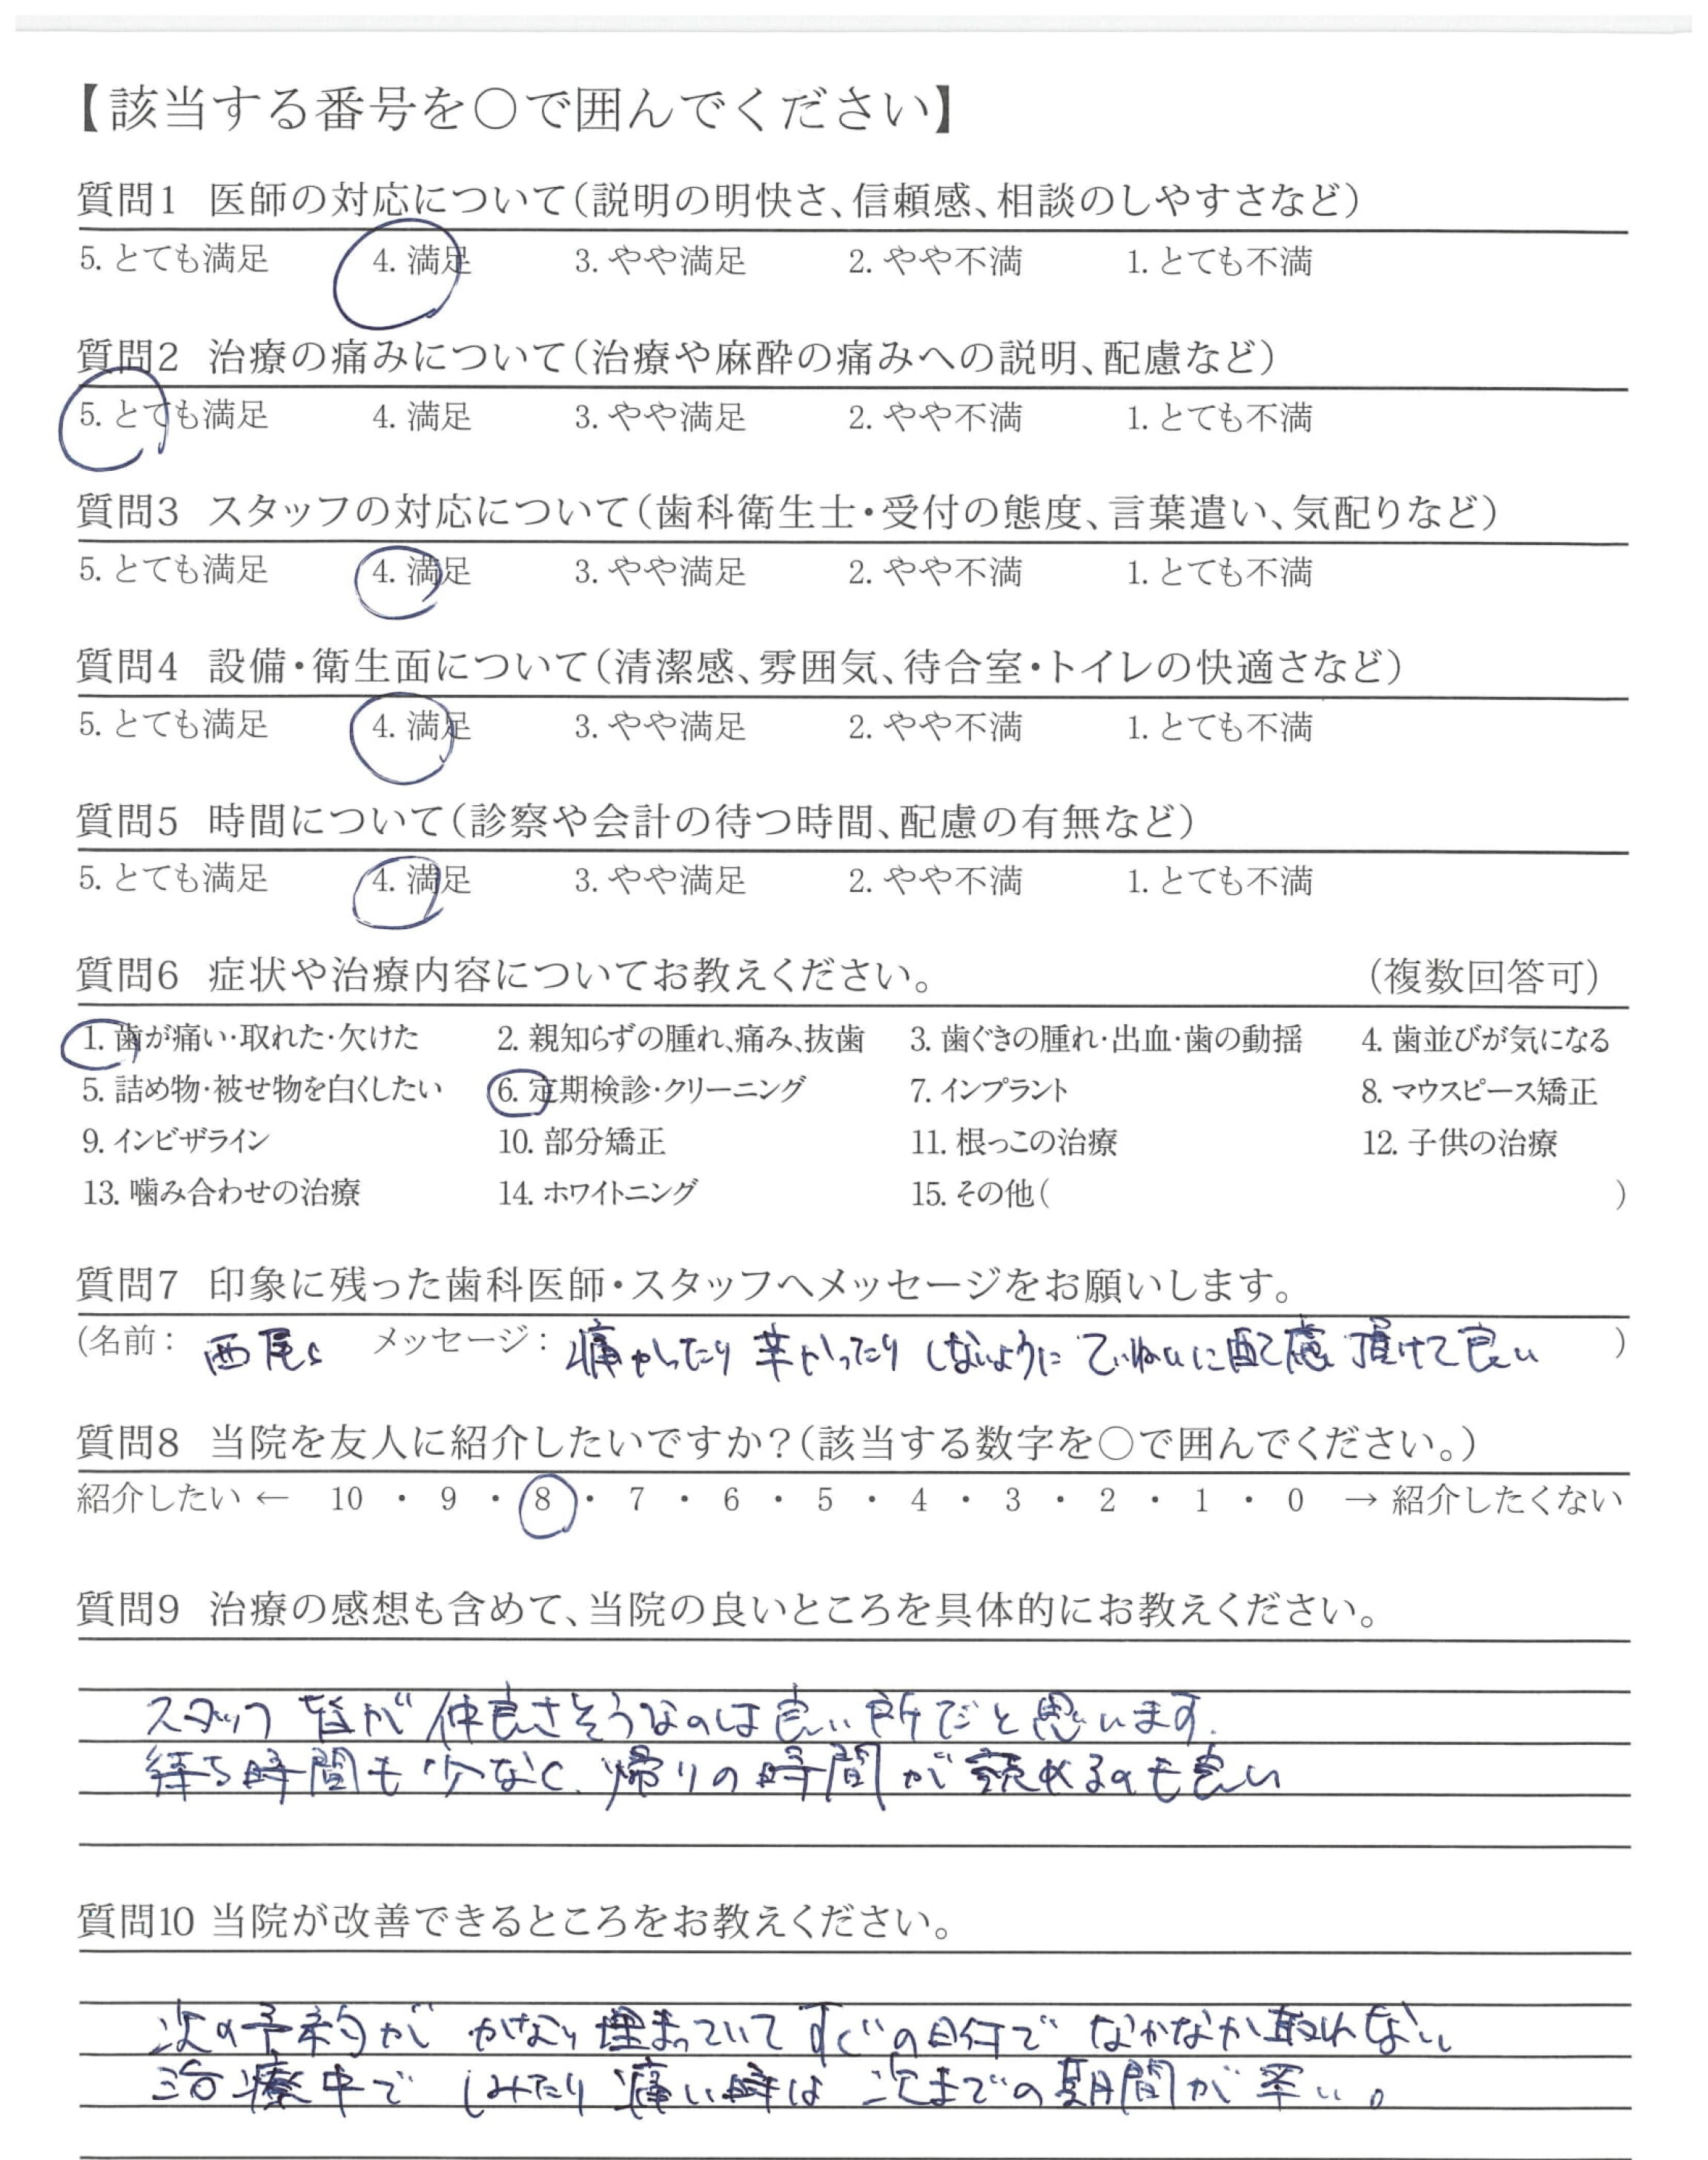 【該当する番号を○で囲んでください】
質問1 医師の対応について（説明の明快さ、信頼感、相談のしやすさなど）
5. とても満足 4. 満足 3. やや満足 2. やや不満 1. とても不満
質問2 治療の痛みについて（治療や麻酔の痛みへの説明、配慮など）
5. とても満足 4. 満足 3. やや満足 2. やや不満 1. とても不満
質問3 スタッフの対応について（歯科衛生士・受付の態度、言葉遣い、気配りなど）
5. とても満足 4. 満足 3. やや満足 2. やや不満 1. とても不満
質問4 設備・衛生面について（清潔感、雰囲気、待合室・トイレの快適さなど）
5. とても満足 4. 満足 3. やや満足 2. やや不満 1. とても不満
質問5 時間について（診察や会計の待つ時間、配慮の有無など）
5. とても満足 4. 満足 3. やや満足 2. やや不満 1. とても不満
質問6 症状や治療内容についてお教えください。 （複数回答可）
1. 歯が痛い・取れた・欠けた 2. 親知らずの腫れ、痛み、抜歯 3. 歯ぐきの腫れ・出血・歯の動揺 4. 歯並びが気になる
5. 詰め物・被せ物を白くしたい 6. 定期検診・クリーニング 7. インプラント 8. マウスピース矯正
9. インビザライン 10. 部分矯正 11. 根っこの治療 12. 子供の治療
13. 噛み合わせの治療 14. ホワイトニング 15. その他（ ）
質問7 印象に残った歯科医師・スタッフへメッセージをお願いします。
（名前： 西尾さ メッセージ： 痛かったり辛かったりしないように ていねいに配慮頂けて良い ）
質問8 当院を友人に紹介したいですか？（該当する数字を○で囲んでください。）
紹介したい ← 10 ・ 9 ・ 8 ・ 7 ・ 6 ・ 5 ・ 4 ・ 3 ・ 2 ・ 1 ・ 0 → 紹介したくない
質問9 治療の感想も含めて、当院の良いところを具体的にお教えください。
スタッフ皆が仲良さそうなのは良い所だと思います.
待ち時間も少なく、帰りの時間が読めるのも良い
質問10 当院が改善できるところをお教えください。
次の予約がかなり埋まっていてすぐの日付でなかなか取れない
治療中でしみたり痛い時は次までの期間が辛い。